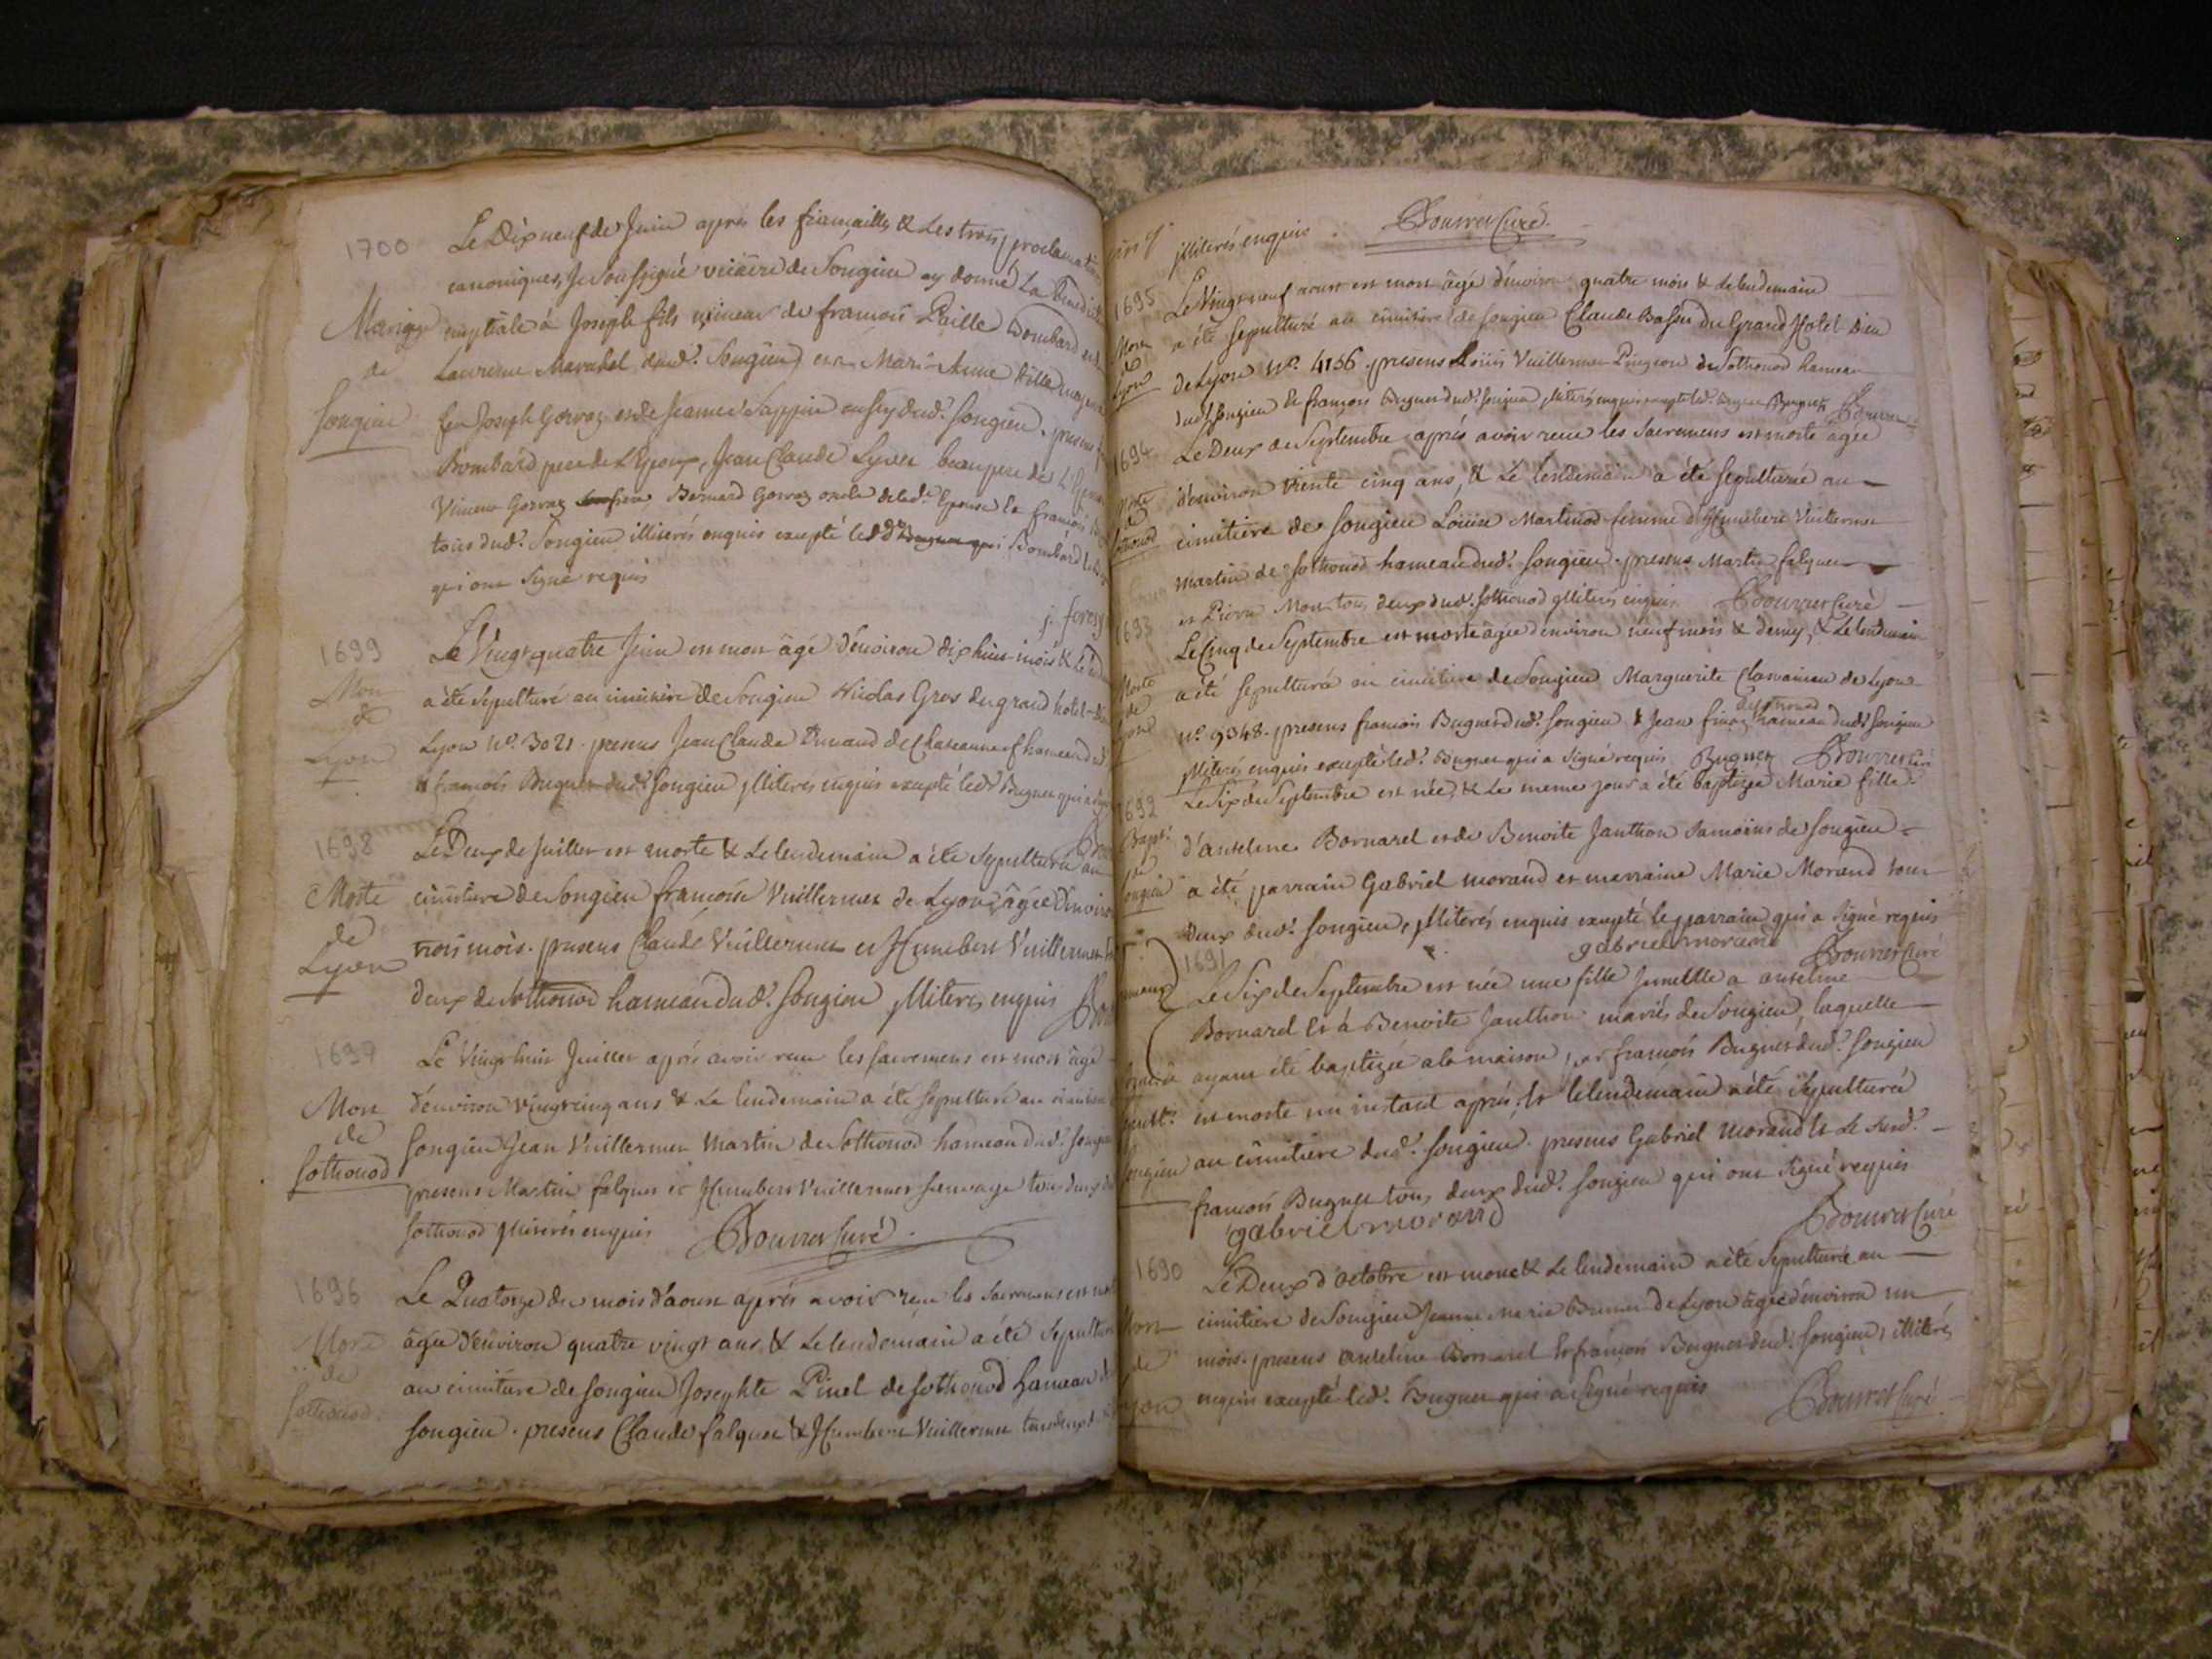 1700
Le Dix neuf de Juin apres les fiançailles & Les trois proclamations
canoniques, Je soussigné vicaire de Songieu ay donné La Benedict
Mariage nuptiale à Joseph fils mineur de francois Paille Bombard et de
de Laurence Maratel dud.t Songieu et a Marie Anne fille majeure
Songieu feu Joseph Gorraz et de Jeanne Sappin aussy dud.t Songieu. presens
Bombard pere de L'Epoux, Jean Claude Lyvet beaupere de L'Epouse
Vincent Gorraz Bernard Gorraz oncle de lad.e Epouse & francois
tous dud.t Songieu illiterés enquis excepté led.t Bombard
qui ont signé requis
j. forest
1699
Le Vingt quatre Juin est mort âgé d'environ dix huit mois & le
Mort
de
Lyon
a été sepulturé au cimitiere de Songieu Nicolas Gros du grand hotel-
Lyon N.o 3021. presens Jean Claude Durand de Chateauneuf hameau
& francois Buguet dud.t Songieu illiterés enquis excepté led.t Buguet qui a
1698
Le Deux de Juillet est morte & Le lendemain a été Sepulturée au
Morte
de
Lyon
cimitiere de Songieu francoise Vuillermet de Lyon âgée d'environ
trois mois. presens Claude Vuillermet et Humbert Vuillermet
deux de Sothonod hameau dud.t Songieu illiterés enquis
1697
Le Vingt huit Juillet après avoir reçu les sacremens est mort âgé
Mort
de
Sothonod
d'environ vingt cinq ans & Le lendemain a été sepulturé au cimitiere
Songieu Jean Vuillermet Martin de Sothonod hameau dud.t Songieu
presens Martin falquet et Humbert Vuillermet sauvage tous deux
Sothonod illiterés enquis Bouvret Curé.
1696
Le Quatorze du mois d'aoust après avoir reçu les sacremens est
Morte
de
Sothonod
âgée d'environ quatre vingt ans, & Le lendemain a été Sepulturée
au cimitiere de Songieu Josephte Pinel de Sothonod hameau
Songieu. presens Claude falquet & Humbert Vuillermet tous deux
illiterés enquis. Bouvret Curé.
1695
Le Vingt neuf aoust est mort âgé d'environ quatre mois & Le lendemain
Mort
de
Lyon
a été sepulturé au cimitiere de Songieu Claude Bassu du Grand Hotel Dieu
de Lyon N.o 4156. presens Loüis Vuillermet Pingeon de Sothonod hameau
dud.t Songieu & francois Buguet dud.t Songieu illiterés enquis excepté led.t Buguet Buguet Bouvret
1694
Le Deux de Septembre après avoir reçu les Sacremens est morte âgée
Morte
de
Sothonod
d'environ trente cinq ans, & Le lendemain a été sepulturée au
cimitiere de Songieu Loüise Martinod femme d'Humbert Vuillermet
martin de Sothonod hameau dud.t Songieu. presens Martin falquet
et Pierre Mon tous deux dud.t Sothonod illiterés enquis Bouvret Curé
1693
Le Cinq de Septembre est morte âgée d'environ neuf mois & demy, & Le lendemain
Morte
de
Lyon
a été sepulturée au cimitiere de Songieu Marguerite de Lyon
N.o 9348. presens francois Buguet dud.t Songieu & Jean finaz de Sothonod hameau dud.t Songieu
illiterés enquis excepté led.t Buguet qui a signé requis Buguet Bouvret Curé
1692
Le Six de Septembre est née, & Le meme jour a été baptizée Marie fille
Bapt.
de
Songieu
d'anselme Bornarel et de Benoite Janthon de Songieu
a été parrain Gabriel morand et marraine Marie Morand tous
deux dud.t Songieu, illiterés enquis excepté le parrain qui a signé requis
gabriel morand Bouvret Curé
1691
Le Six de Septembre est née une fille Jumelle a anselme
Bornarel & à Benoite Janthon mariés de Songieu, laquelle
ayant été baptizée a la maison par francois Buguet dud.t Songieu
est morte un instant après, & le lendemain a été Sepulturée
Songieu au cimitiere dud.t Songieu. presens Gabriel morand & Le susd.t
francois Buguet tous deux dud.t Songieu qui ont signé requis
gabriel morand Bouvret Curé
1690
Le Deux d'octobre est morte & Le lendemain a été Sepulturée au
Morte
de
Lyon
cimitiere de Songieu Jeanne Marie de Lyon âgée d'environ un
mois. presens anselme Bornarel & francois Buguet dud.t Songieu, illiterés
enquis excepté led.t Buguet qui a signé requis Bouvret Curé